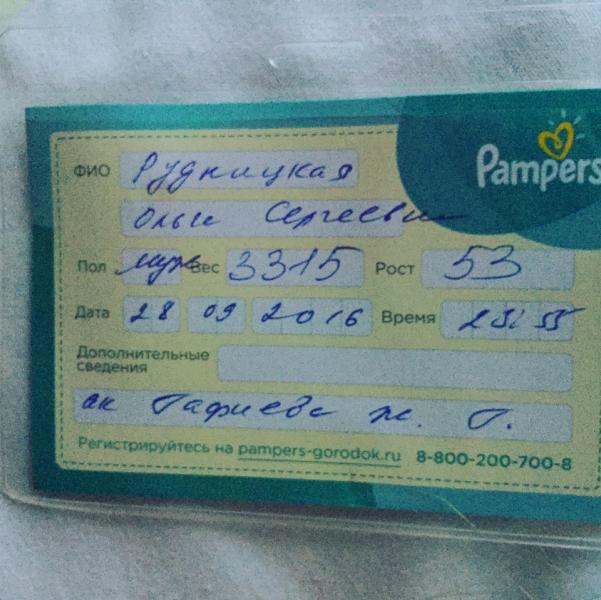 Pampers
ФИО Рудницкая
Ольги Сергеевны
Пол муж Вес 3315 Рост 53
Дата 28 09 2016 Время 23:55
Дополнительные
сведения
ак Гафиева
Регистрируйтесь на pampers-gorodok.ru 8-800-200-700-8